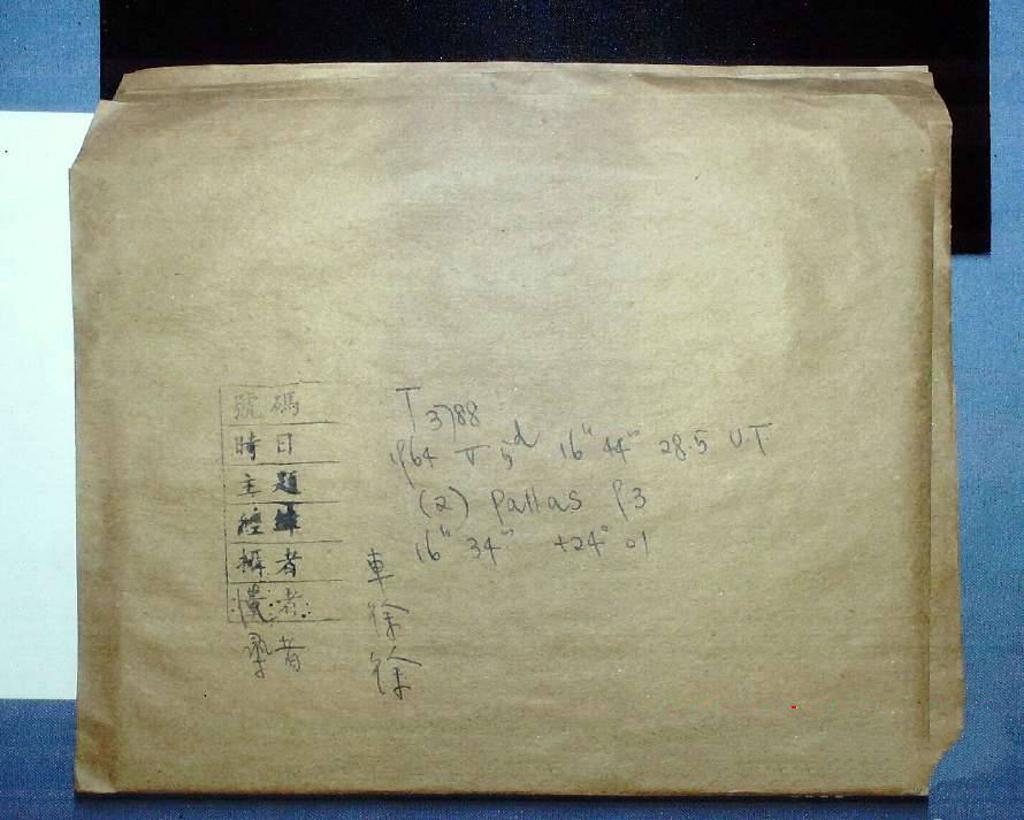 號碼 T 3788
時日 1964 V 5d 16h 44m 28.5 U.T
主題 (2) Pallas P3
經緯 16h 34m +24° 01
者 車
者 徐
者 徐